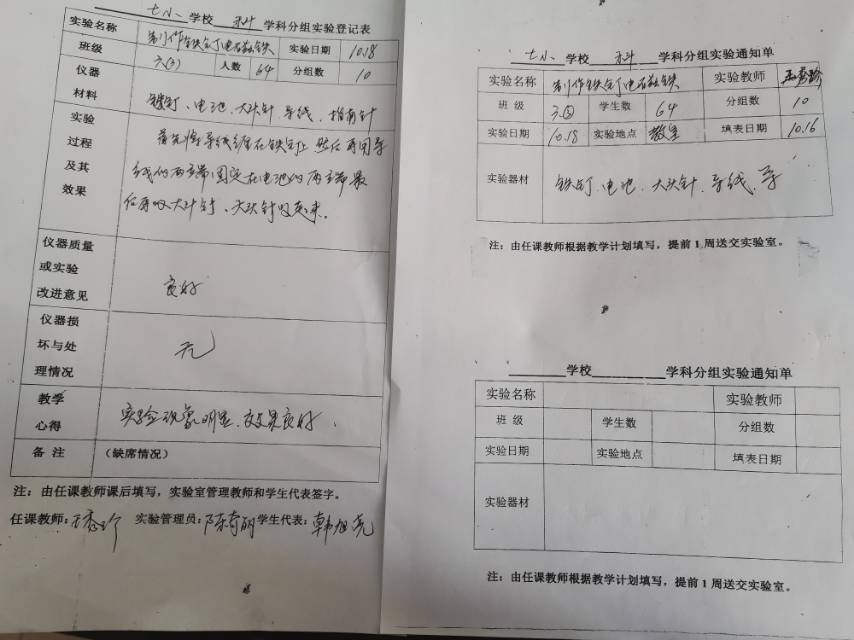 七小 学校 科 学科分组实验登记表
实验名称 制作铁钉电磁铁 实验日期 10.18
班级 六(3) 人数 64 分组数 10
仪器
材料 铁钉、电池、大头针、导线、指南针
实验
过程
及其
效果
首先将导线绕在铁钉上 然后再用导
线的两端固定在电池的两端最
后再吸大头针、大头针吸起来。
仪器质量
或实验
改进意见
良好
仪器损
坏与处
理情况
无
教学
心得
实验现象明显、效果良好、
备注 (缺席情况)
注：由任课教师课后填写，实验室管理教师和学生代表签字。
任课教师： 实验管理员： 学生代表：
七小 学校 科 学科分组实验通知单
实验名称 制作铁钉电磁铁 实验教师
班级 学生数 64 分组数 10
实验日期 10.18 实验地点 教室 填表日期 10.16
实验器材 铁钉、电池、大头针、导线、导
注：由任课教师根据教学计划填写，提前1周送交实验室。
学校 学科分组实验通知单
实验名称 实验教师
班级 学生数 分组数
实验日期 实验地点 填表日期
实验器材
注：由任课教师根据教学计划填写，提前1周送交实验室。